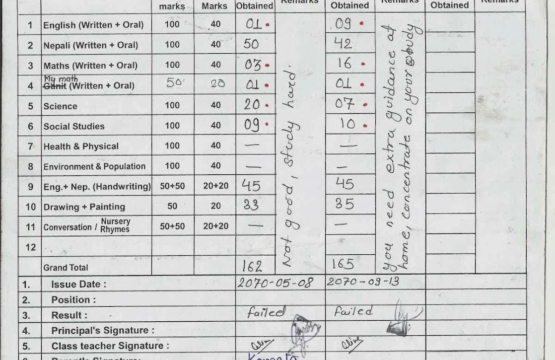 marks Marks Obtained Remarks Obtained Remarks Obtained Remarks
1 English (Written + Oral) 100 40 01 09
2 Nepali (Written + Oral) 100 40 50 42
3 Maths (Written + Oral) 100 40 03 16
My math
4 Ganit (Written + Oral) 50 20 01 01
5 Science 100 40 20 07
6 Social Studies 100 40 09 10
7 Health & Physical 100 40 — —
8 Environment & Population 100 40 — —
9 Eng.+ Nep. (Handwriting) 50+50 20+20 45 45
10 Drawing + Painting 50 20 33 35
11 Conversation / Nursery Rhymes 50+50 20+20 — —
12
Not good, study hard.
you need extra guidance at
home, concentrate on your study
Grand Total 162 165
1. Issue Date : 2070-05-08 2070-09-13
2. Position :
3. Result : failed failed
4. Principal's Signature :
5. Class teacher Signature :